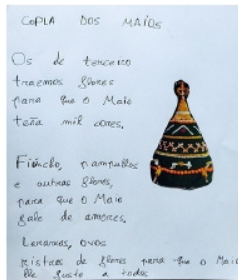 COPLA DOS MAIOS
Os de terceiro
traemos flores
para que o Maio
teña mil cores.
Fiúncho, pampullos
e outras flores,
para que o Maio
gale de amores.
Laranxas, ovos
Ristras de flores para que o Maio
lle guste a todos